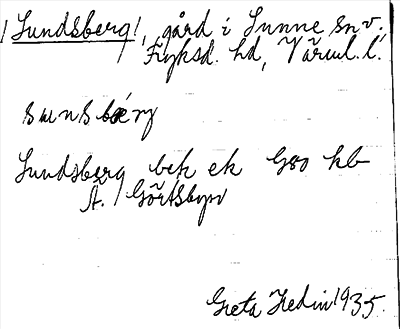 /Sundsberg/, gård i Sunne snv.
Fryksd. hd, Värml. l.
Sundsberg bek ek G80 kb
Å. Görtsbyn
Greta Hedin 1935.